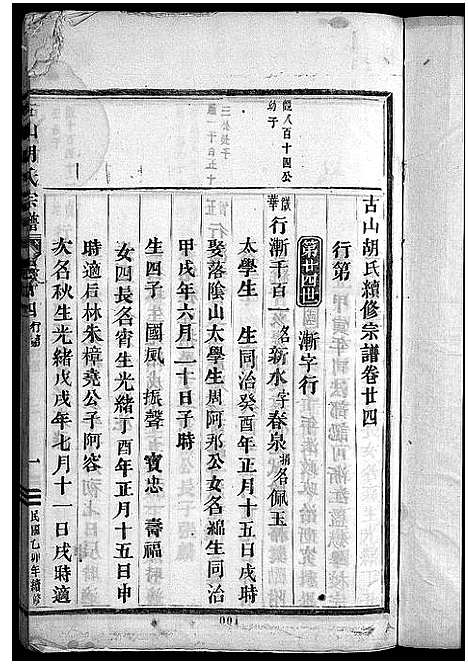 古山胡氏續修宗譜卷廿四
行第
第廿四世 漸字行
饒八百十四公
幼子
行漸千百一 名新水 字春泉 捐名佩玉
太學生 生同治癸酉年正月十五日戌時
娶落陰山太學生周阿那公女名綿生同治
甲戌年六月二十日子時
生四子 國風 振聲 寳忠 壽福
女四長名宵生光緒丁酉年正月十五日申
時適后林朱樟堯公子阿容
次名秋生光緒戊戌年七月十一日戌時適
古山胡氏宗譜
行第
一
民國乙卯年續修
001